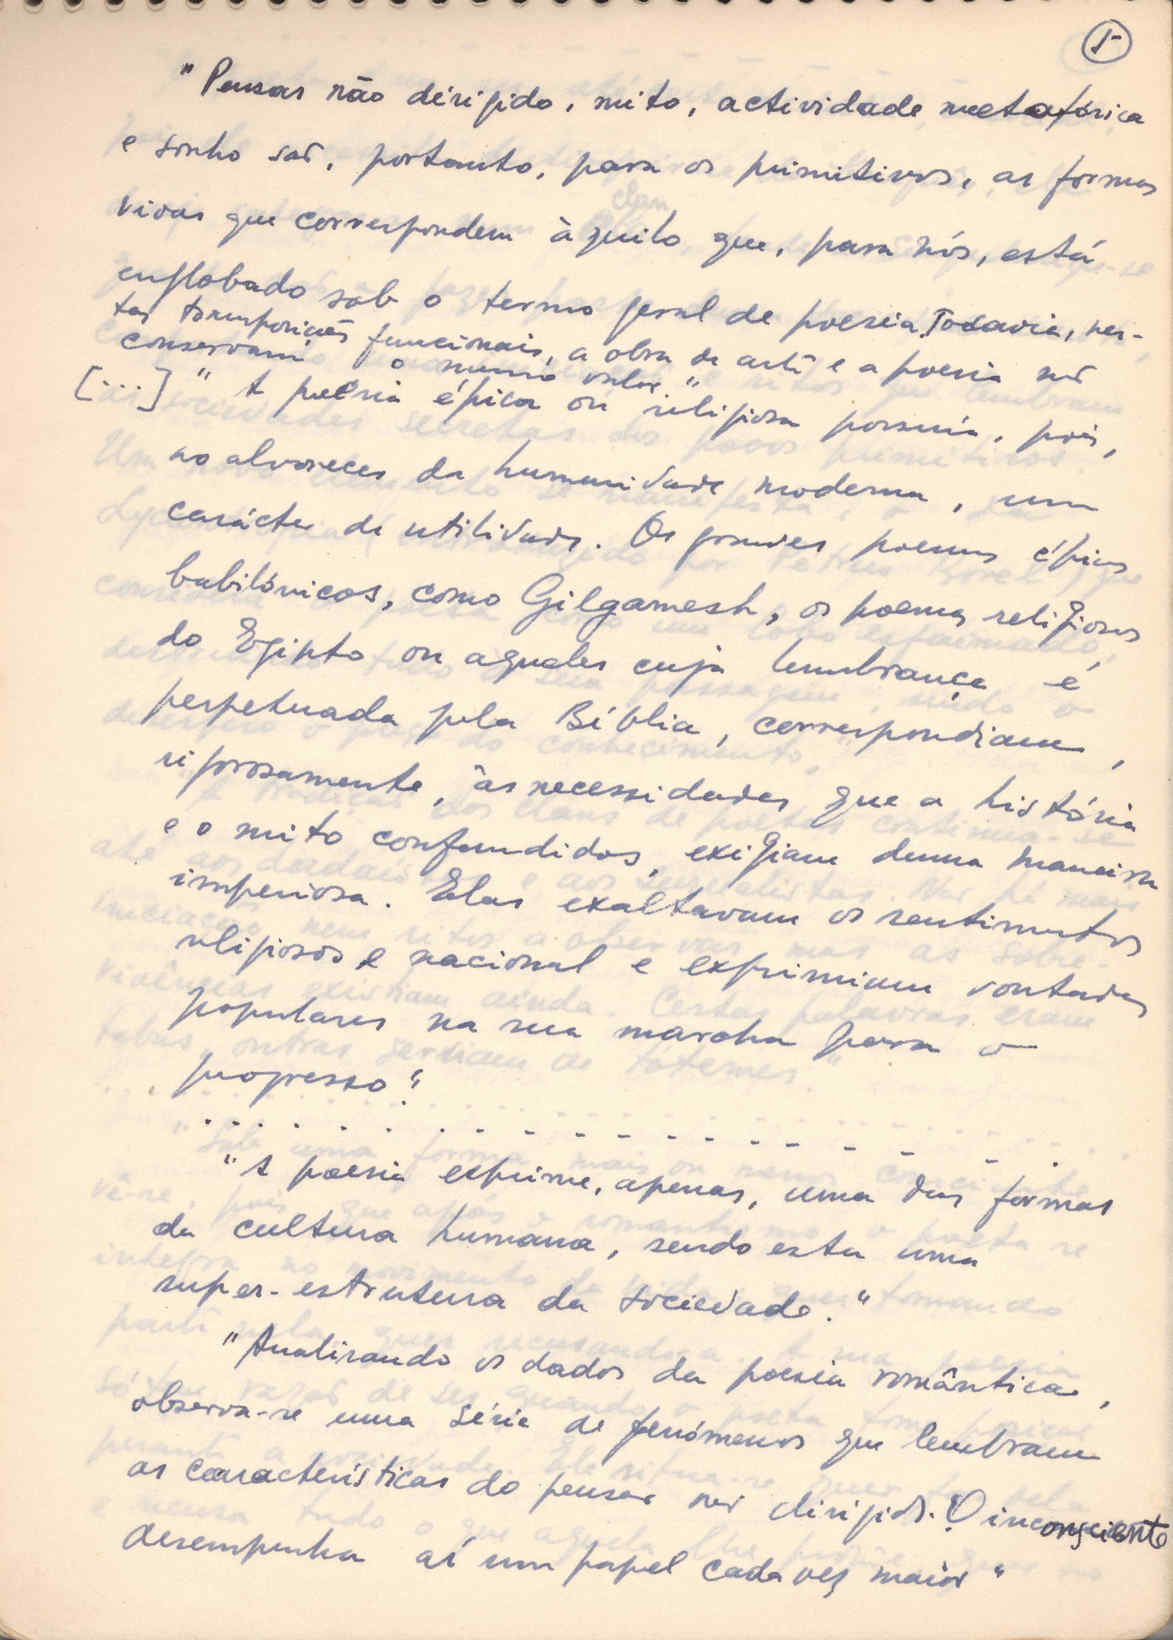 5
"Pensar não dirigido, mito, actividade metafórica
e sonho são, portanto, para os primitivos, as formas
vivas que correspondem àquilo que, para nós, está
englobado sob o termo geral de poesia. Todavia, nes-
tas transposições funcionais, a obra de arte e a poesia não
conservam o mesmo valor."
[...] "A poesia épica ou religiosa possuía, pois,
ao alvorecer da humanidade moderna, um
carácter de utilidade. Os grandes poemas épicos
babilónicos, como Gilgamesh, os poemas religiosos
do Egipto ou aqueles cuja lembrança é
perpetuada pela Bíblia, correspondiam,
rigorosamente, às necessidades que a história
e o mito confundidos, exigiam duma maneira
imperiosa. Elas exaltavam os sentimentos
religiosos e nacional e exprimiam vontades
populares na sua marcha para o
progresso."
. . . . . . . . . . . . . . . .
"A poesia exprime, apenas, uma das formas
da cultura humana, sendo esta uma
super-estrutura da sociedade."
"Analisando os dados da poesia romântica,
observa-se uma série de fenómenos que lembram
as características do pensar não dirigido. O inconsciente
desempenha aí um papel cada vez maior"